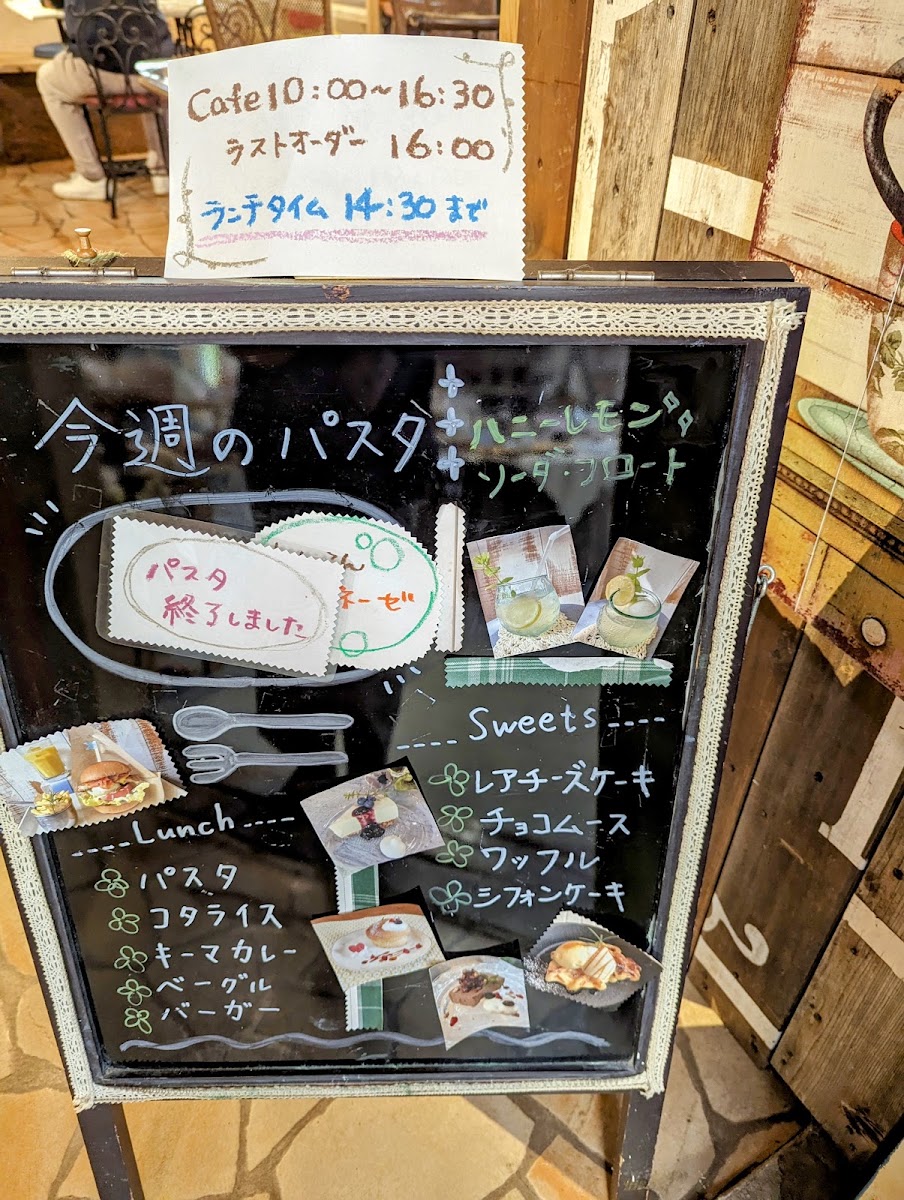 Cafe 10:00〜16:30
ラストオーダー 16:00
ランチタイム 14:30まで
今週のパスタ
パスタ
終了しました
ん
ネーゼ
ハニーレモン
ソーダ・フロート
Sweets
レアチーズケーキ
チョコムース
ワッフル
シフォンケーキ
Lunch
パスタ
コタライス
キーマカレー
ベーグル
バーガー